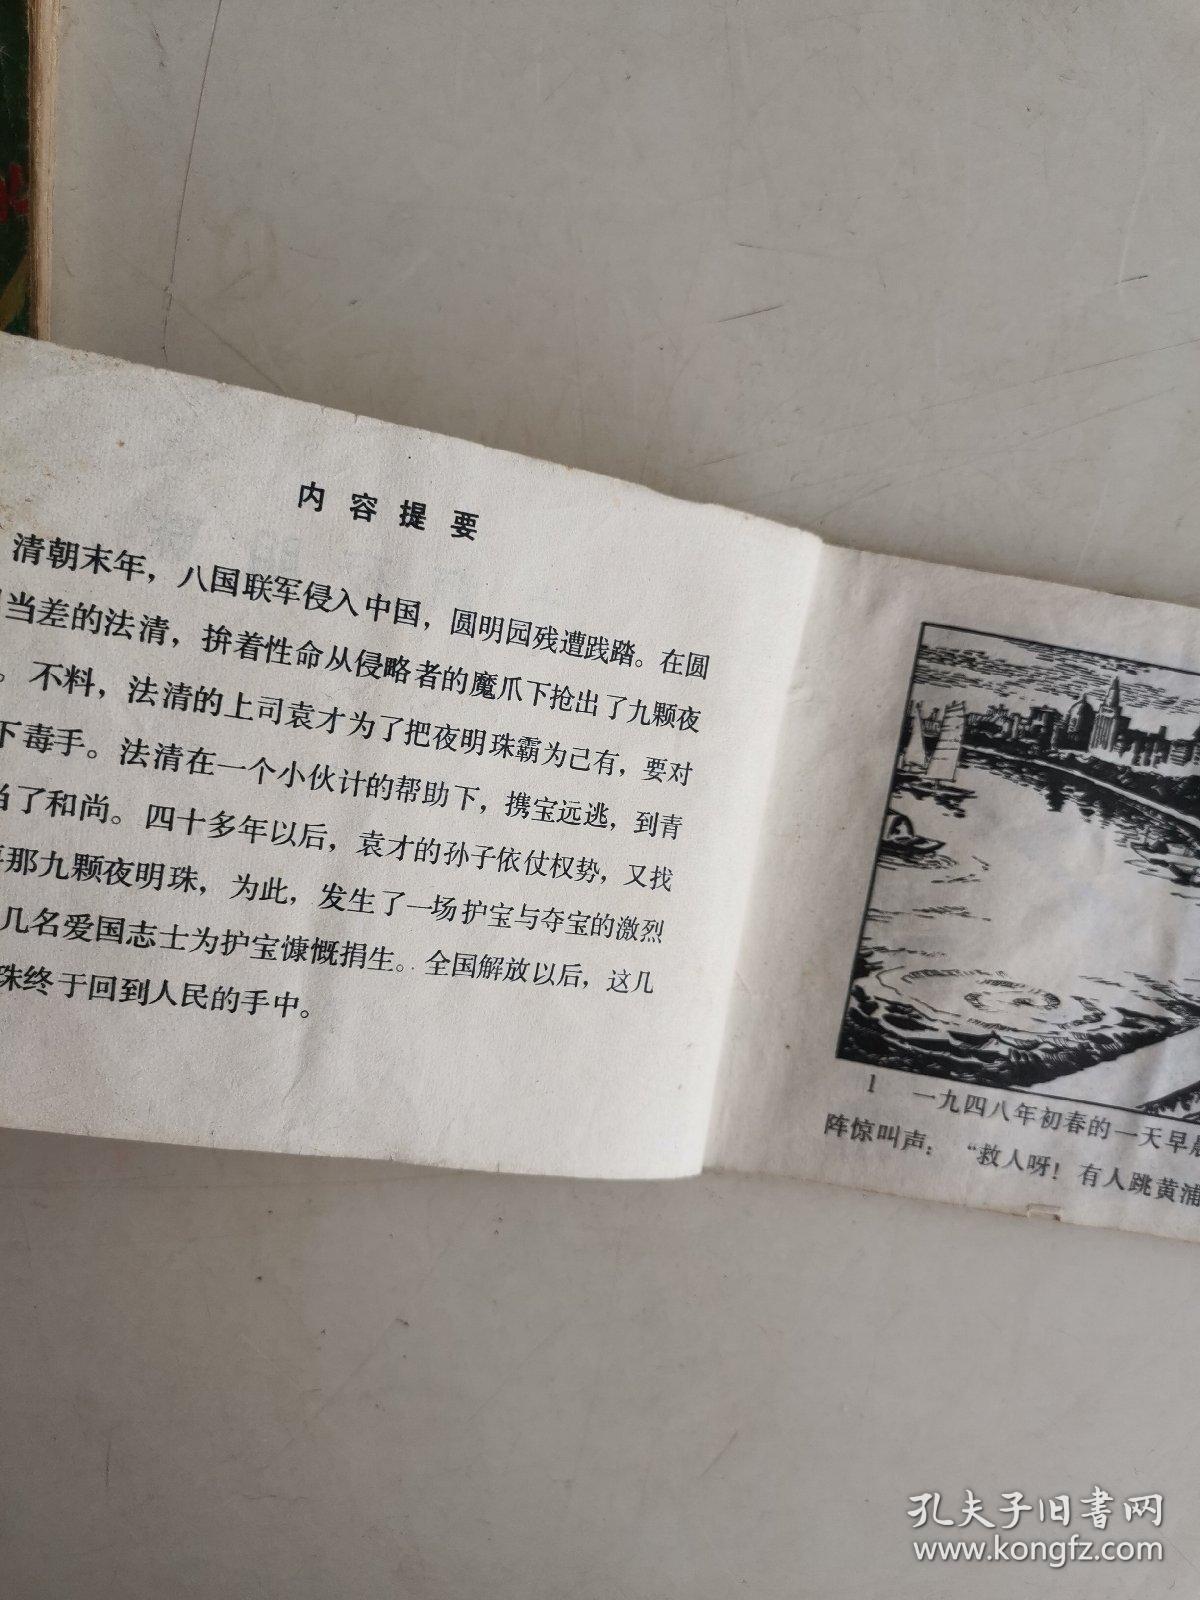 内容提要
清朝末年，八国联军侵入中国，圆明园残遭践踏。在圆
当差的法清，拚着性命从侵略者的魔爪下抢出了九颗夜
。不料，法清的上司袁才为了把夜明珠霸为己有，要对
下毒手。法清在一个小伙计的帮助下，携宝远逃，到青
当了和尚。四十多年以后，袁才的孙子依仗权势，又找
那九颗夜明珠，为此，发生了一场护宝与夺宝的激烈
几名爱国志士为护宝慷慨捐生。全国解放以后，这几
珠终于回到人民的手中。
1 一九四八年初春的一天早晨
阵惊叫声：“救人呀！有人跳黄浦
孔夫子旧书网
www.kongfz.com